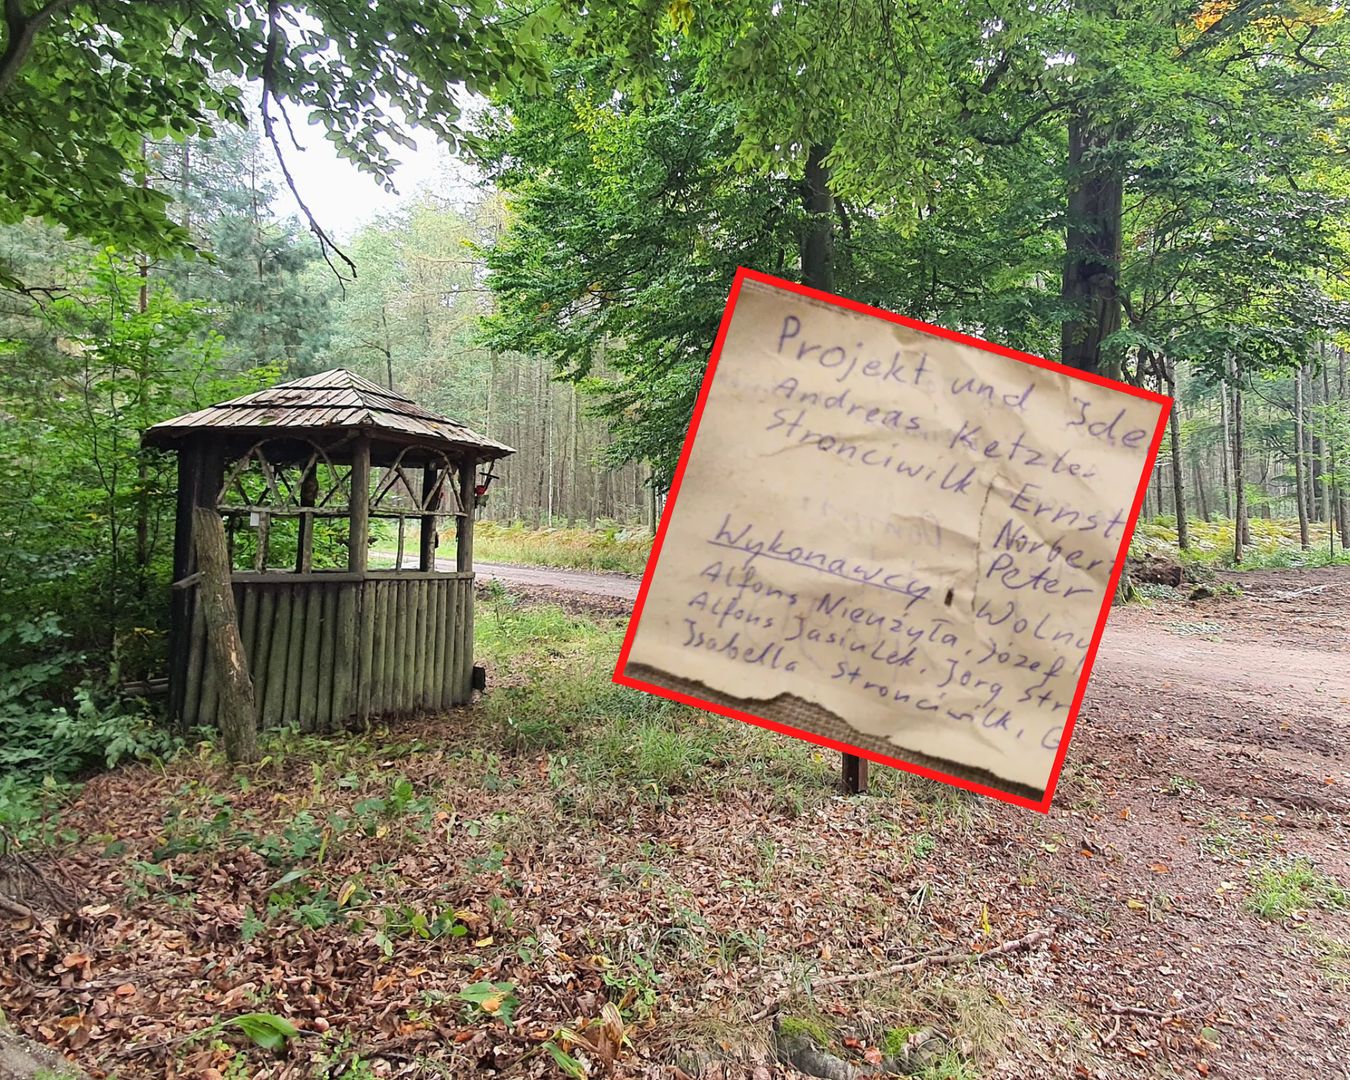 Projekt und Ide
Andreas Ketzler
Stronciwilk Ernst
Norber
Peter
Wykonawcy: Wolny
Alfons Nieużyła, Józef
Alfons Jasiulek, Jörg Str
Isabella Stronciwilk, G